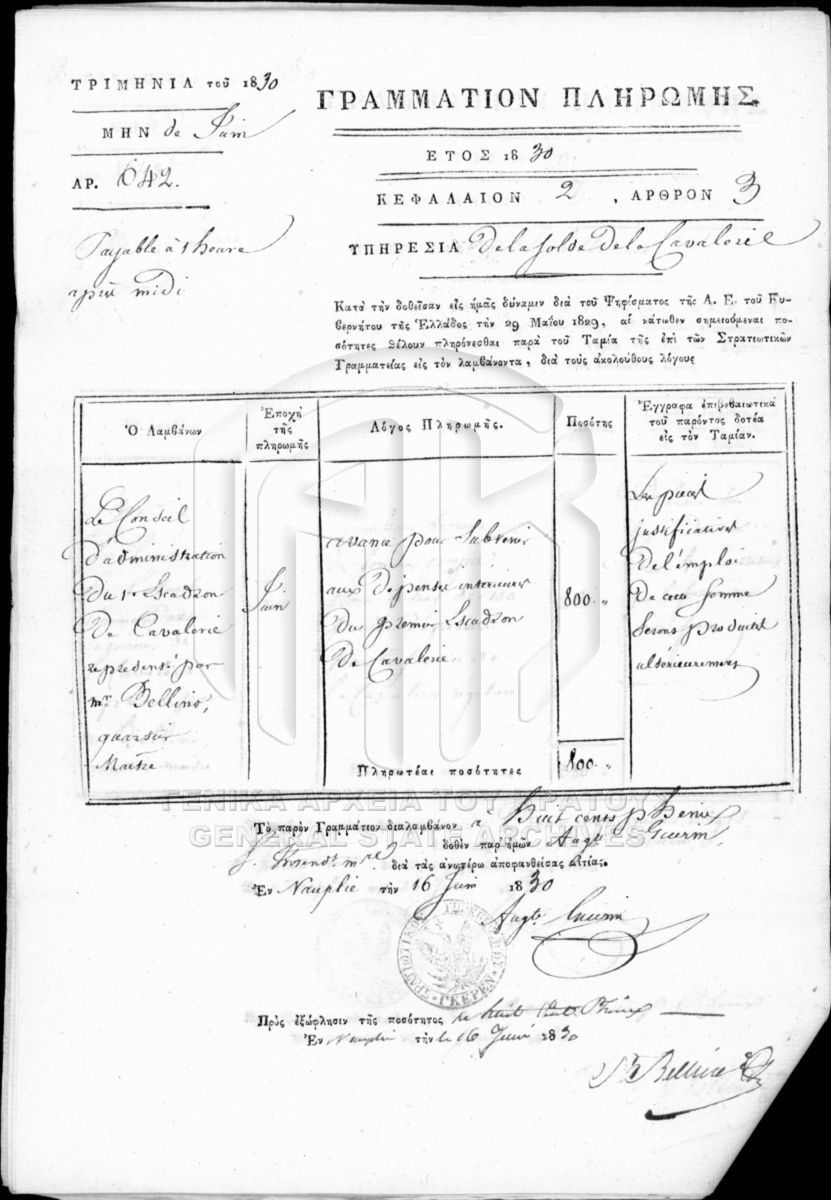 ΤΡΙΜΗΝΙΑ τοῦ 1830
ΜΗΝ de Juin
ΑΡ. 642.
Payable à 1 heure
après midi
ΓΡΑΜΜΑΤΙΟΝ ΠΛΗΡΩΜΗΣ
ΕΤΟΣ 1830
ΚΕΦΑΛΑΙΟΝ 2 , ΑΡΘΡΟΝ 3
ΥΠΗΡΕΣΙΑ De la Solde de la Cavalerie
Κατὰ τὴν δοθεῖσαν εἰς ἡμᾶς δύναμιν διὰ τοῦ Ψηφίσματος τῆς Α. Ε. τοῦ Κυ-
βερνήτου τῆς Ἑλλάδος τὴν 29 Μαΐου 1829, αἱ κάτωθεν σημειούμεναι πο-
σότητες θέλουν πληρόνεσθαι παρὰ τοῦ Ταμία τῆς ἐπὶ τῶν Στρατιωτικῶν
Γραμματείας εἰς τὸν λαμβάνοντα, διὰ τοὺς ἀκολούθους λόγους
Ὁ Λαμβάνων
Le Conseil
d'administration
du 1er Escadron
de Cavalerie
représenté par
mr. Bellino,
quartier
Maitre
Ἐποχὴ
τῆς
πληρωμῆς
Juin
Λόγος Πληρωμῆς.
avance pour Subvenir
aux Dépenses intérieures
du premier Escadron
de Cavalerie
Πληρωτέαι ποσότητες
Ποσότης
800 "
800 "
Ἔγγραφα ἐπιβεβαιωτικὰ
τοῦ παρόντος δοτέα
εἰς τὸν Ταμίαν.
Les pièces
justificatives
de l'emploi
de cette Somme
Seront produites
ultérieurement
ΓΕΝΙΚΑ ΑΡΧΕΙΑ ΤΟΥ ΚΡΑΤΟΥΣ
GENERAL STATE ARCHIVES
Τὸ παρὸν Γραμμάτιον διαλαμβάνον huit cents phenix
δοθὲν παρ' ἡμῶν Augte Guerin
διὰ τὰς ἀνωτέρω ἀποφανθείσας Αἰτίας.
Ἐν Nauplie τὴν 16 Juin 1830
Augte Guerin
Πρὸς ἐξώφλησιν τῆς ποσότητος de huit Cent Phénix
Ἐν Nauplie τὴν le 16 Juin 1830
Bellino